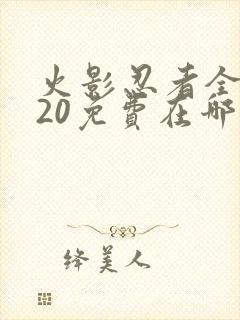 火影忍者全
20免費在哪
绛美人